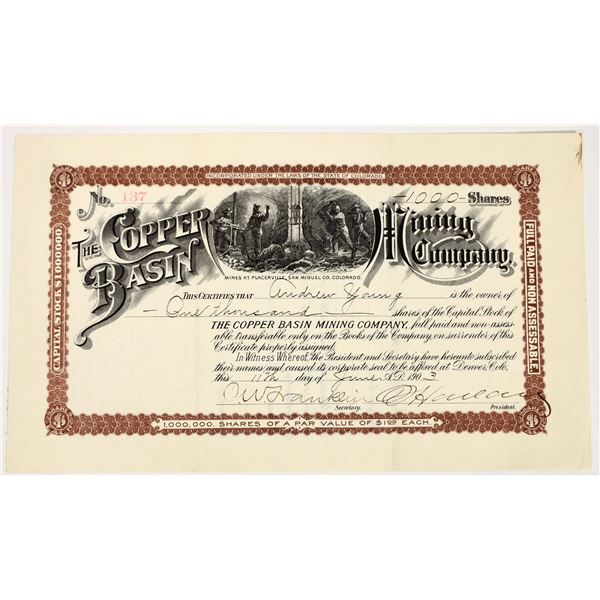 INCORPORATED UNDER THE LAWS OF THE STATE OF COLORADO.
No. 137
-1000- Shares
THE COPPER BASIN Mining Company.
MINES AT PLACERVILLE, SAN MIGUEL CO. COLORADO.
CAPITAL STOCK $1000,000.
FULL PAID AND NON ASSESSABLE.
THIS CERTIFIES THAT Andrew Young is the owner of
- One thousand - shares of the Capital Stock of
THE COPPER BASIN MINING COMPANY, full paid and non-assess-
able transferable, only on the Books of the Company, on surrender of this
Certificate properly assigned.
In Witness Whereof, the President and Secretary have hereunto subscribed
their names and caused its corporate seal to be affixed at Denver, Colo.,
this 11th day of June A.D. 1903
C W Franklin
Secretary.
President.
1,000,000. SHARES OF A PAR VALUE OF $1.00 EACH.